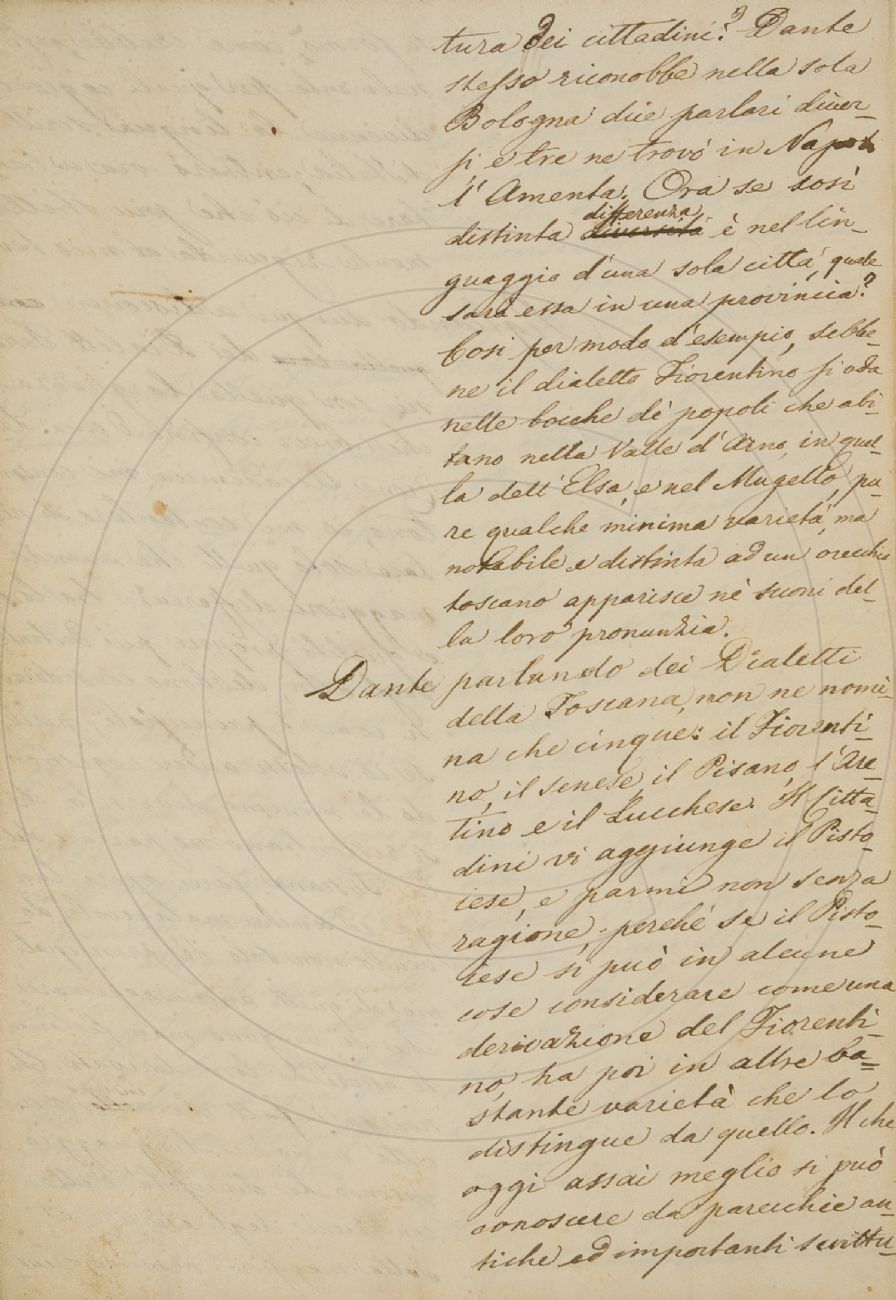 tura dei cittadini? Dante
stesso riconobbe nella sola
Bologna due parlari diver-
si e tre ne trovò in Napoli
l'Amenta. Ora se sosì
differenza
distinta diversità è nel lin-
guaggio d'una sola città, quale
sarà essa in una provincia?
Così per modo d'esempio, sebbe-
ne il dialetto Fiorentino si oda
nelle bocche dè popoli che abi-
tano nella Valle d'Arno, in quel-
la dell'Elsa, e nel Mugello, pu-
re qualche minima varietà, ma
notabile e distinta ad un orecchio
toscano apparisce nè suoni del-
la loro pronunzia.
Dante parlando dei Dialetti
della Toscana, non ne nomi-
na che cinque: il Fiorenti-
no, il senese, il Pisano, l'Are-
tino e il Lucchese. Il Citta-
dini vi aggiunge il Pisto-
iese, e parmi non senza
ragione, perché se il Pisto-
iese si può in alcune
cose considerare come una
derivazione del Fiorenti-
no, ha poi in altre ba-
stante varietà che lo
distingue da quello. Il che
oggi assai meglio si può
conoscere da parecchie an-
tiche ed importanti scrittu-